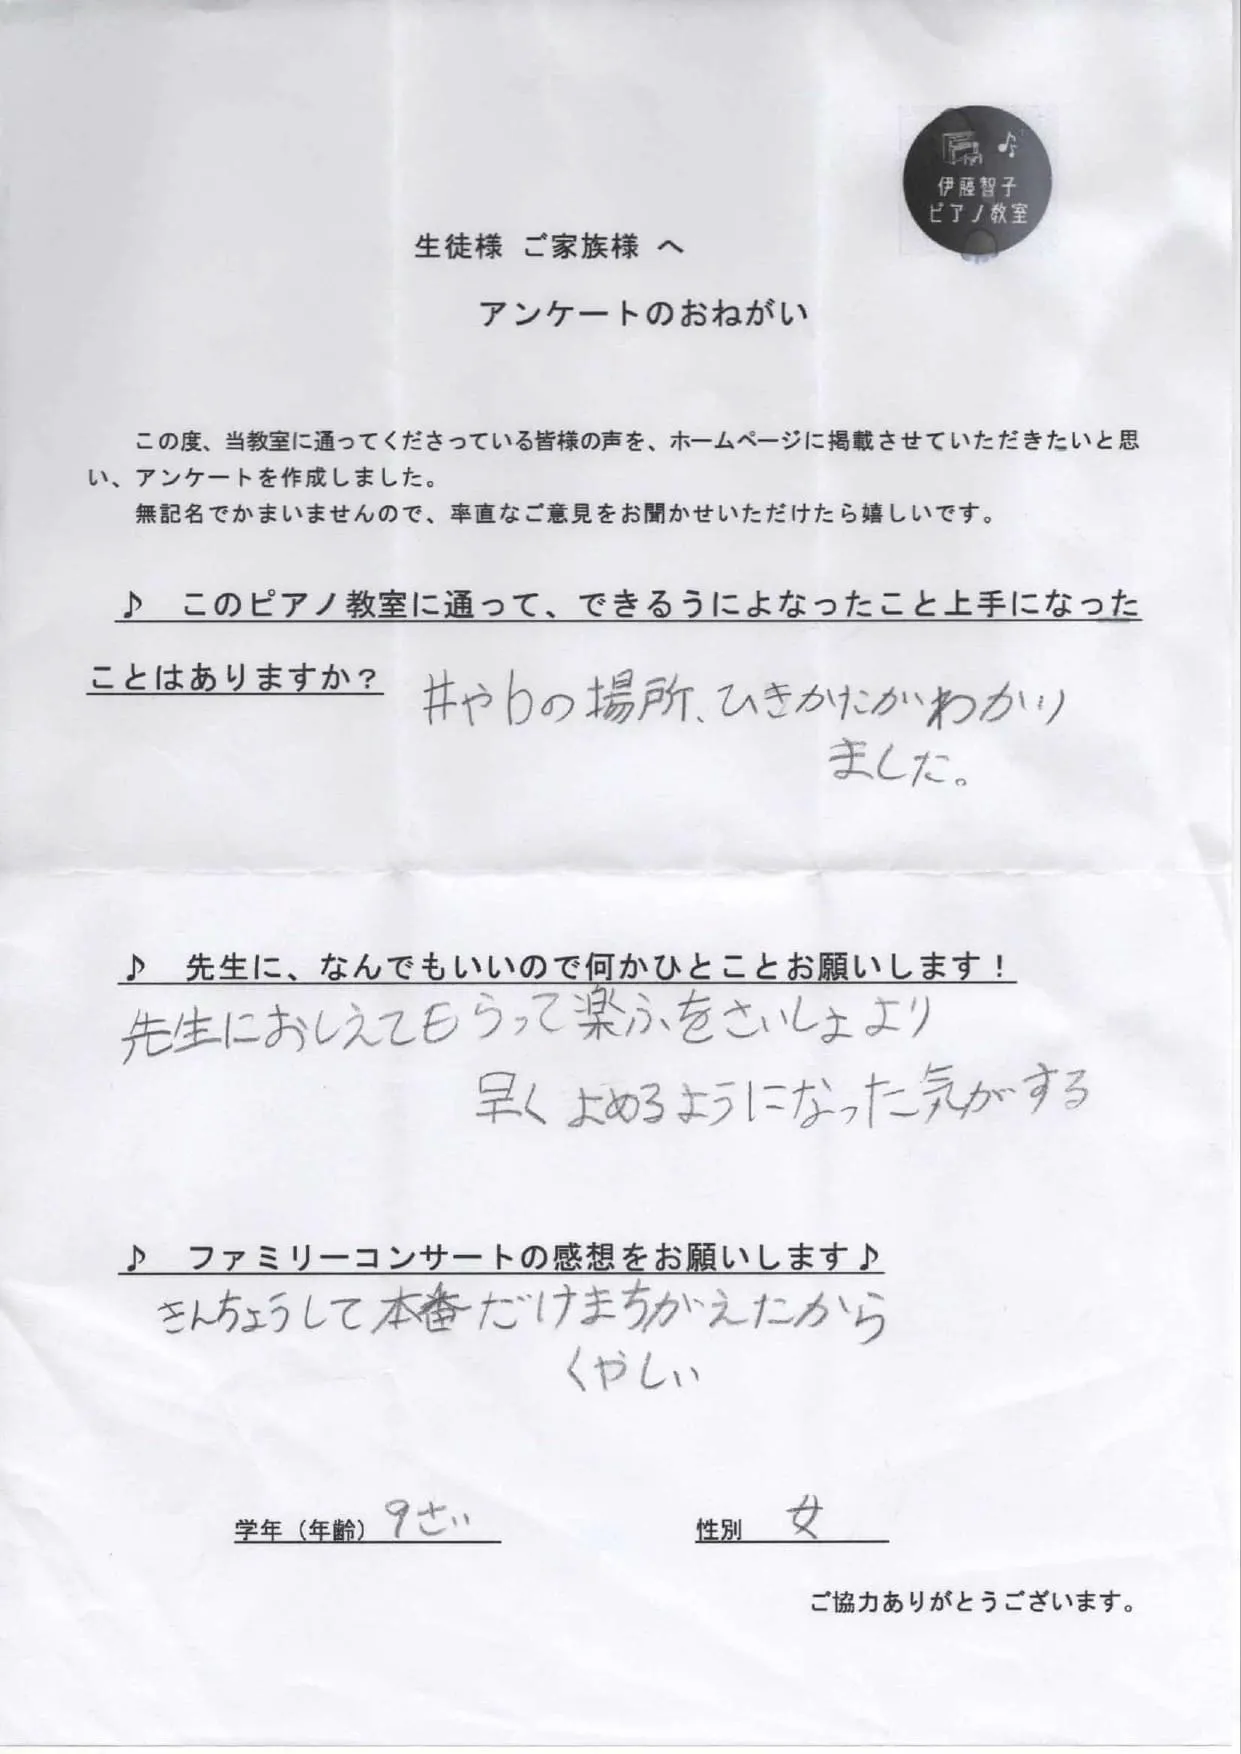 伊藤智子
ピアノ教室
生徒様 ご家族様 へ
アンケートのおねがい
この度、当教室に通ってくださっている皆様の声を、ホームページに掲載させていただきたいと思
い、アンケートを作成しました。
無記名でかまいませんので、率直なご意見をお聞かせいただけたら嬉しいです。
♪ このピアノ教室に通って、できるうによなったこと上手になった
ことはありますか？
#や♭の場所、ひきかたがわかり
ました。
♪ 先生に、なんでもいいので何かひとことお願いします！
先生におしえてもらって楽ふをさいしょより
早くよめるようになった気がする
♪ ファミリーコンサートの感想をお願いします♪
きんちょうして本番だけまちがえたから
くやしい
学年（年齢） 9さい 性別 女
ご協力ありがとうございます。